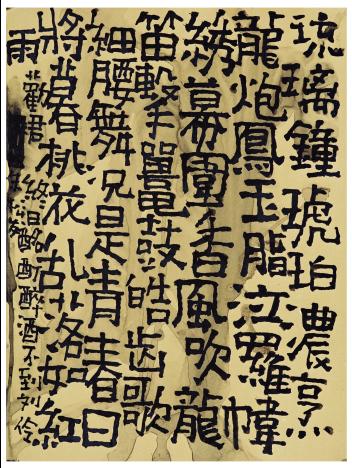 琉璃鐘琥珀濃烹
龍炮鳳玉脂泣羅幃
綉幕圍香風吹龍
笛擊鼉鼓皓齿歌
細腰舞況是青春日
將暮桃花乱落如紅
雨勸君終日酩酊醉酒不到刘伶